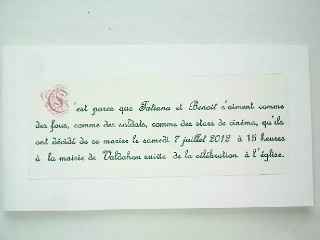 C'est parce que Tatiana et Benoît s'aiment comme
des fous, comme des soldats, comme des stars de cinéma, qu'ils
ont décidé de se marier le samedi 7 juillet 2012 à 15 heures
à la mairie de Valdahon suivie de la célébration à l'église.